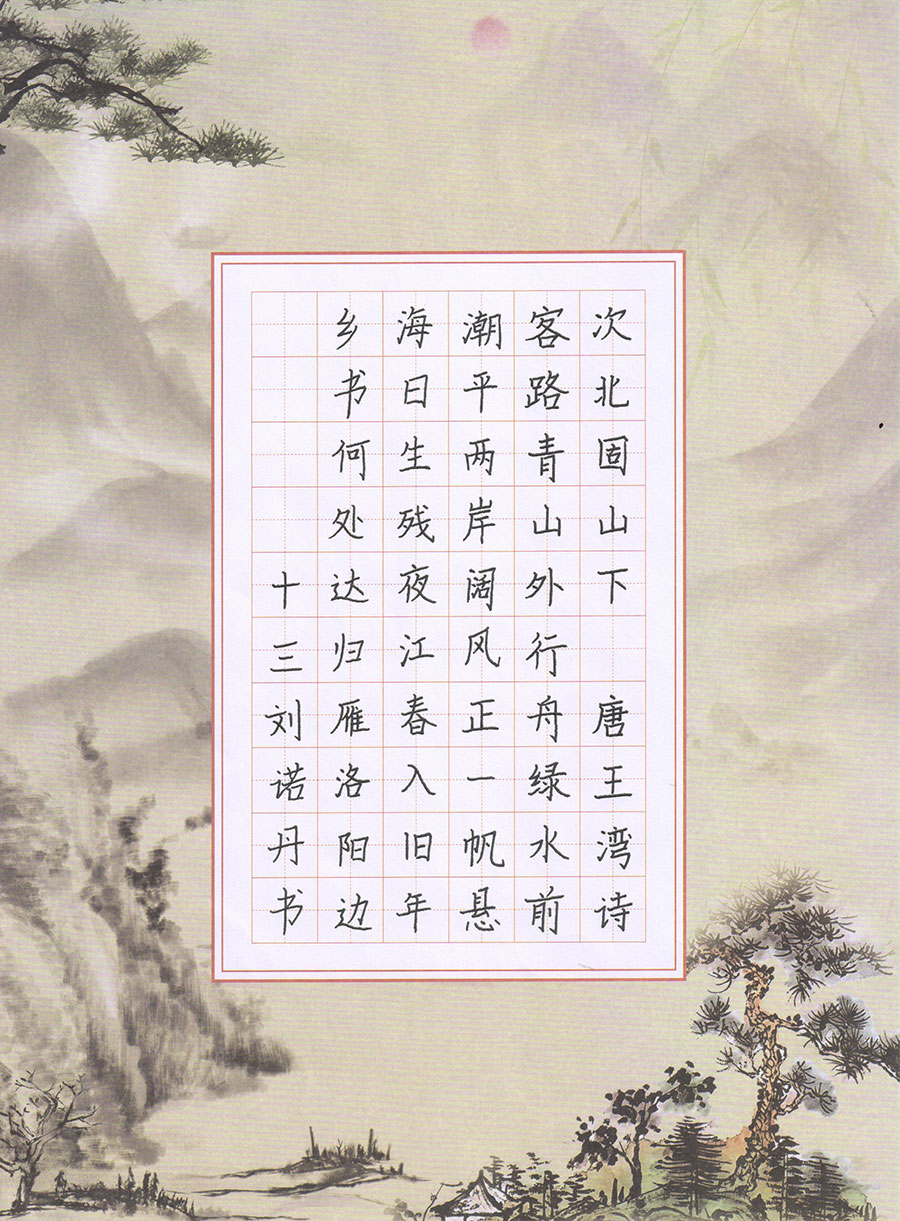 次北固山下 唐王湾诗
客路青山外行舟绿水前
潮平两岸阔风正一帆悬
海日生残夜江春入旧年
乡书何处达归雁洛阳边
十三刘诺丹书